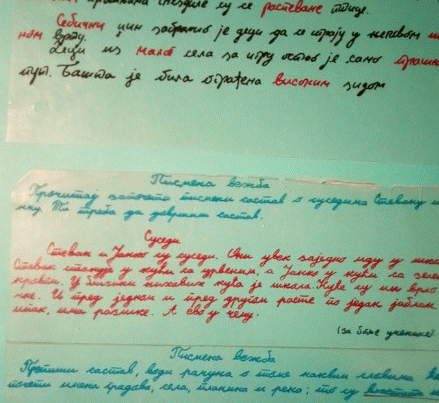 гнездиле су се распеване птице.
Себични џин забранио је деци да се играју у његовом
ном врту.
Деци из малог села за игру остао је само прашња
пут. Башта је била ограђена високим зидом
Писмена вежба
Прочитај започети писмени састав о суседима Стевану и
нку. Ти треба да довршиш састав.
Суседи
Стеван и Јанко су суседи. Они увек заједно иду у шко
Стеван станује у кући са црвеним, а Јанко у кући са зеле
кровом. У близини њихових кућа је школа. Куће су им врло
не. И пред једном и пред другом расте по један јаблан.
ипак, има разлике. А ево у чему.
(за боље ученике)
Писмена вежба
Препиши састав, води рачуна о томе каквим словима
почети имена градова, села, планина и река; то су властита